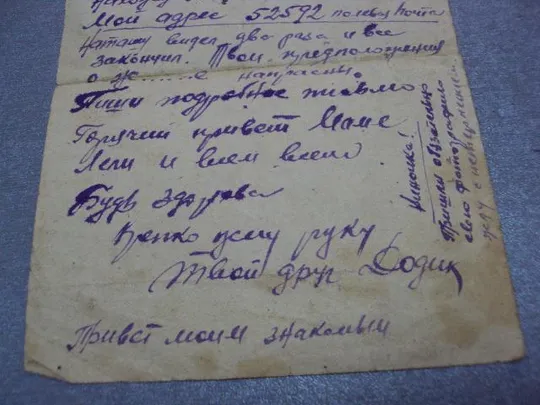 Мой адрес 52592 полевая почта
Наташу видел два раза и все
закончил. Твои предположения
о ж......е напрасны.
Пиши подробное письмо
Горячий привет Маме
Лели и всем всем
Будь здорова
Крепко жму руку
Твой друг Додик
Привет моим знакомым
Ниночка!
Пришли обязательно
свою фотографию
жду с нетерпением